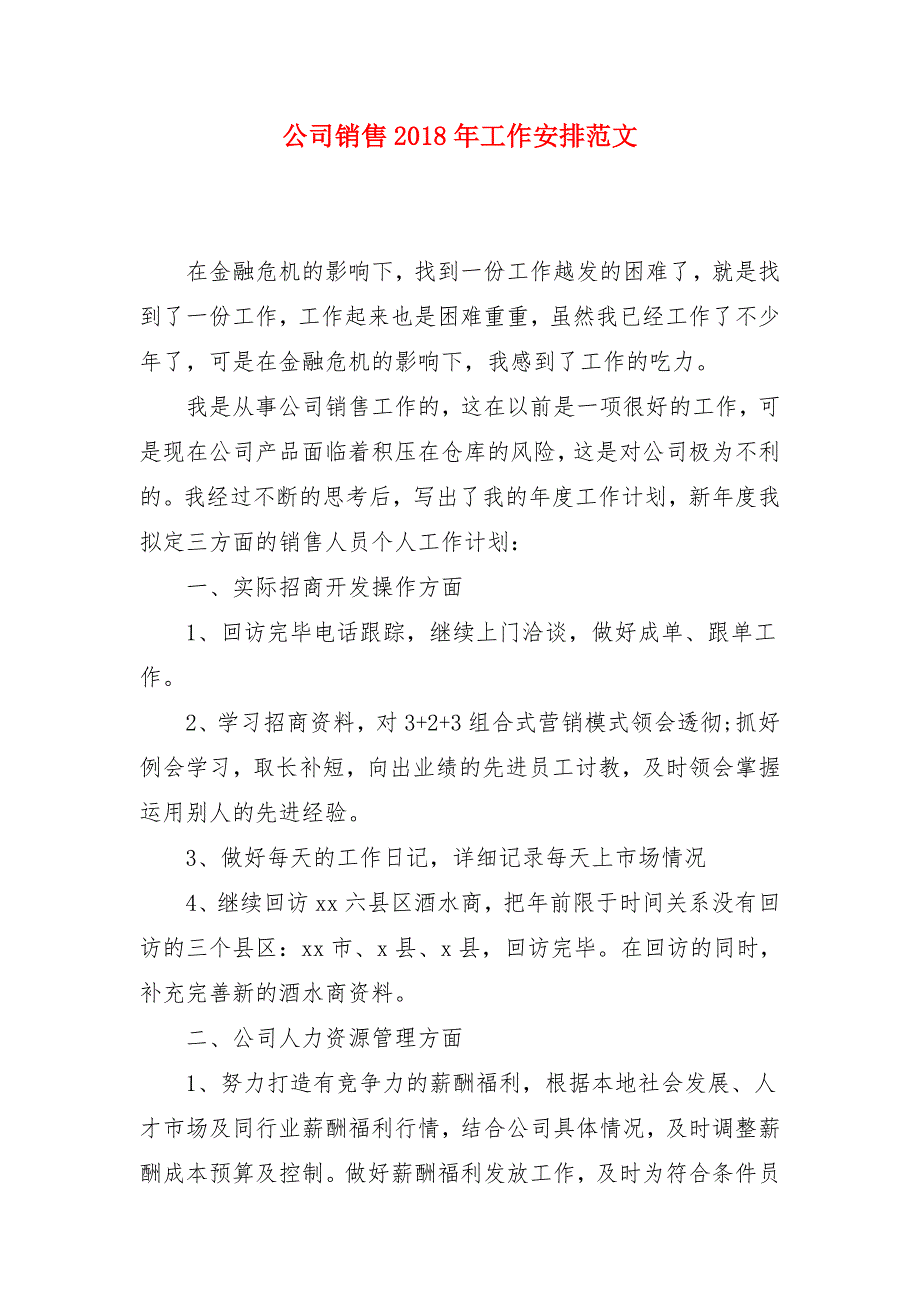 公司销售 2018 年工作安排范文
在金融危机的影响下，找到一份工作越发的困难了，就是找
到了一份工作，工作起来也是困难重重，虽然我已经工作了不少
年了，可是在金融危机的影响下，我感到了工作的吃力。
我是从事公司销售工作的，这在以前是一项很好的工作，可
是现在公司产品面临着积压在仓库的风险，这是对公司极为不利
的。我经过不断的思考后，写出了我的年度工作计划，新年度我
拟定三方面的销售人员个人工作计划：
一、实际招商开发操作方面
1、回访完毕电话跟踪，继续上门洽谈，做好成单、跟单工
作。
2、学习招商资料，对 3+2+3 组合式营销模式领会透彻;抓好
例会学习，取长补短，向出业绩的先进员工讨教，及时领会掌握
运用别人的先进经验。
3、做好每天的工作日记，详细记录每天上市场情况
4、继续回访 xx 六县区酒水商，把年前限于时间关系没有回
访的三个县区：xx 市、x 县、x 县，回访完毕。在回访的同时，
补充完善新的酒水商资料。
二、公司人力资源管理方面
1、努力打造有竞争力的薪酬福利，根据本地社会发展、人
才市场及同行业薪酬福利行情，结合公司具体情况，及时调整薪
酬成本预算及控制。做好薪酬福利发放工作，及时为符合条件员